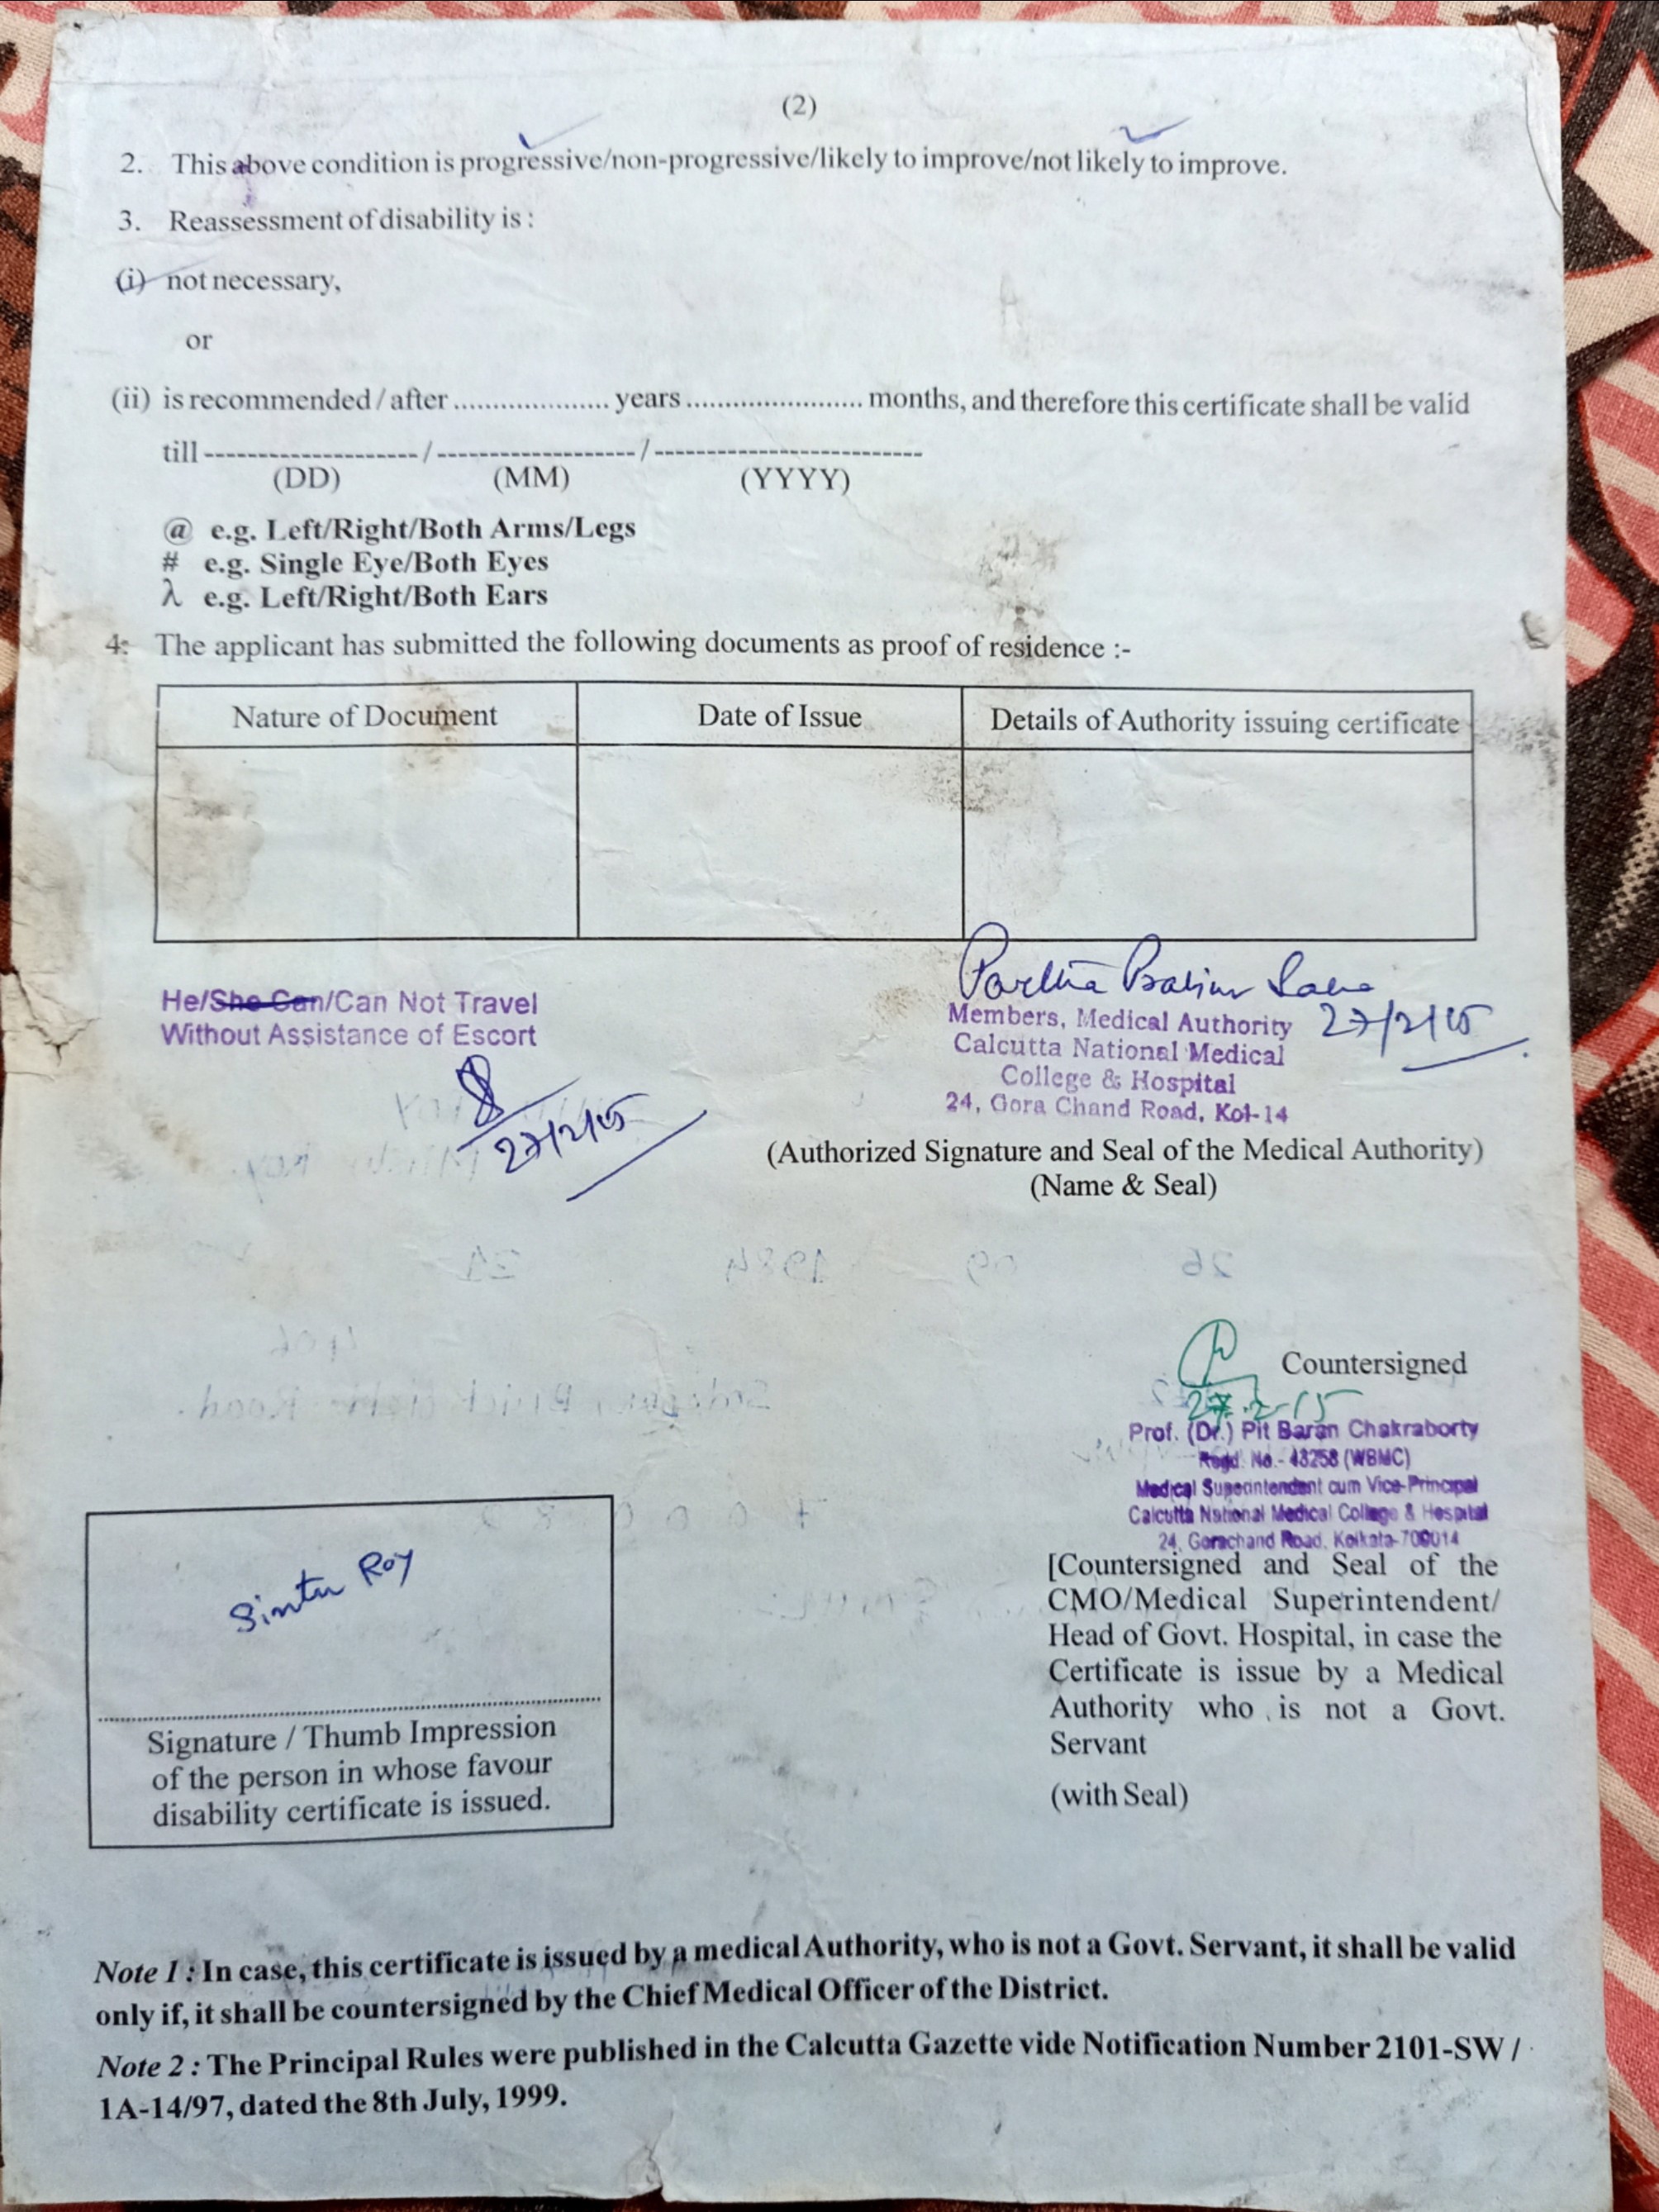 (2)
2. This above condition is progressive/non-progressive/likely to improve/not likely to improve.
3. Reassessment of disability is :
(i) not necessary,
or
(ii) is recommended / after .................... years ...................... months, and therefore this certificate shall be valid
till -------------------- / ------------------- / -------------------------
(DD) (MM) (YYYY)
@ e.g. Left/Right/Both Arms/Legs
# e.g. Single Eye/Both Eyes
λ e.g. Left/Right/Both Ears
4. The applicant has submitted the following documents as proof of residence :-
Nature of Document Date of Issue Details of Authority issuing certificate
He/She Can/Can Not Travel
Without Assistance of Escort
27/2/15
Partha
Members, Medical Authority 27/2/15
Calcutta National Medical
College & Hospital
24, Gora Chand Road, Kol-14
(Authorized Signature and Seal of the Medical Authority)
(Name & Seal)
Countersigned
27.2.15
Prof. (Dr.) Pit Baran Chakraborty
Regd. No.- 43258 (WBMC)
Medical Superintendent cum Vice-Principal
Calcutta National Medical College & Hospital
24, Gorachand Road, Kolkata-700014
[Countersigned and Seal of the
CMO/Medical Superintendent/
Head of Govt. Hospital, in case the
Certificate is issue by a Medical
Authority who is not a Govt.
Servant
(with Seal)
Sintu Roy
Signature / Thumb Impression
of the person in whose favour
disability certificate is issued.
Note 1 : In case, this certificate is issued by a medical Authority, who is not a Govt. Servant, it shall be valid
only if, it shall be countersigned by the Chief Medical Officer of the District.
Note 2 : The Principal Rules were published in the Calcutta Gazette vide Notification Number 2101-SW /
1A-14/97, dated the 8th July, 1999.